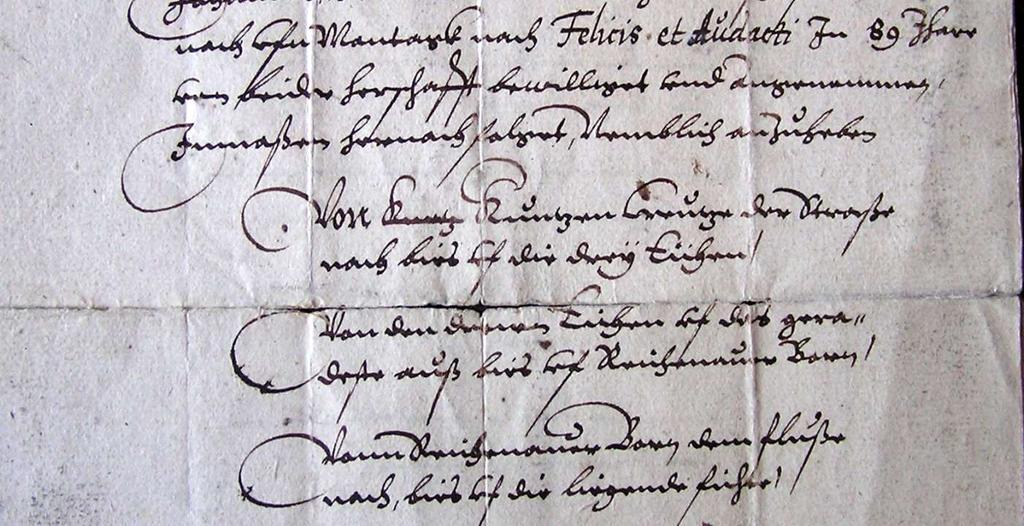 nach ufn Montagk nach Felicis et Audacti In 89 Jhare
von beider herschafft bewilliget und angenommen,
Inmaßen hernach folget, Nemblich anzuheben
Von Kuntzen Creutze der Straße
nach bies uf die drey Eichen/
Von den dreien Eichen uf des gera-
deste auß bies uf Reichenauer Born/
Vonn Reichenauer Born dem fluße
nach, bies uf die liegende fichte/